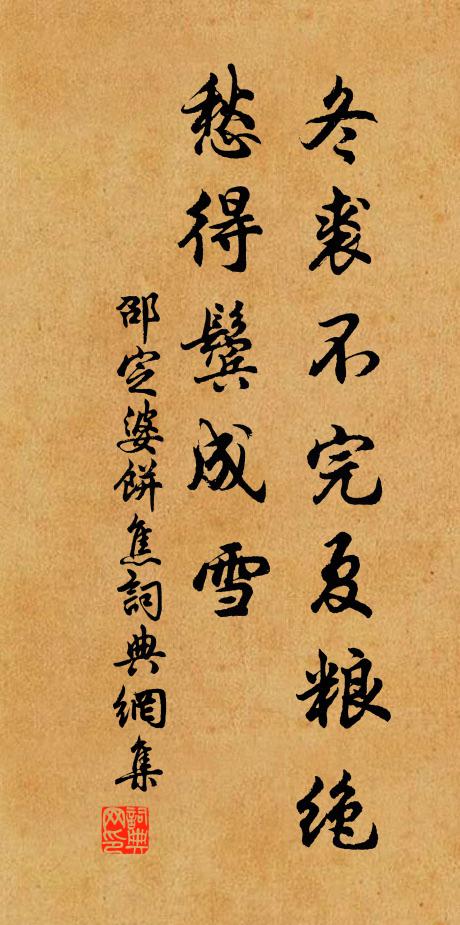 冬裘不完夏粮绝
愁得鬓成雪
邵定婆餅焦詞典網集
詞典网印